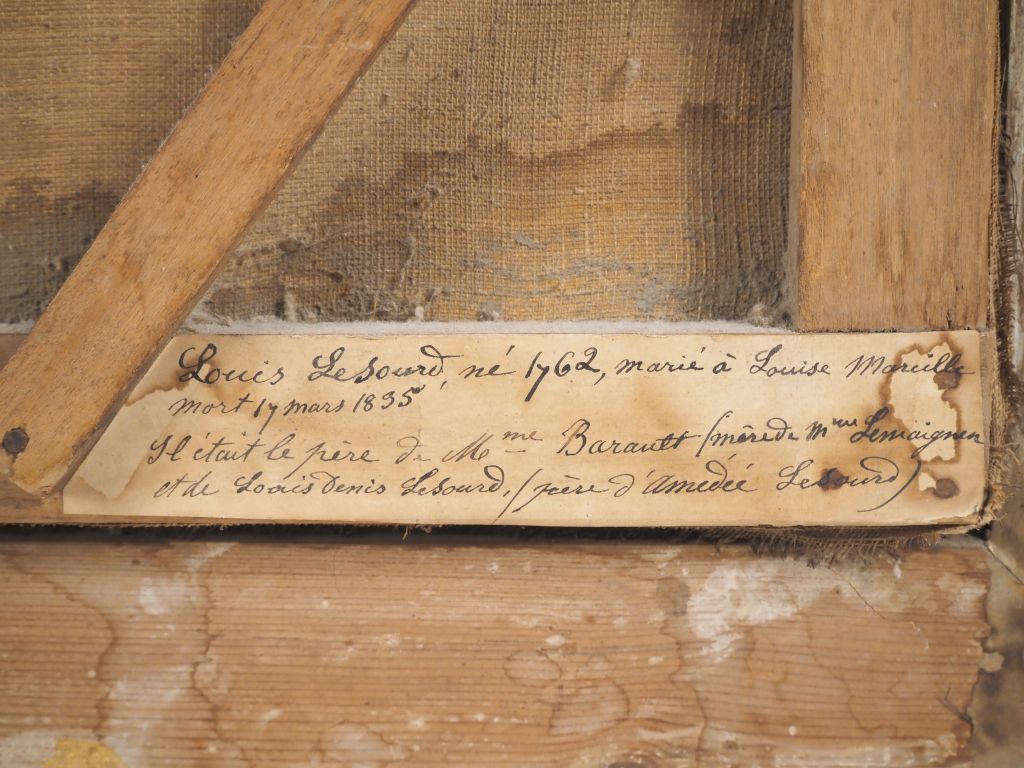 Louis Lesourd, né 1762, marié à Louise Mareille
mort 17 mars 1835
Il était le père de Mme Barault (mère de Mme Lemaignen
et de Louis Denis Lesourd, (père d'Amédée Lesourd)